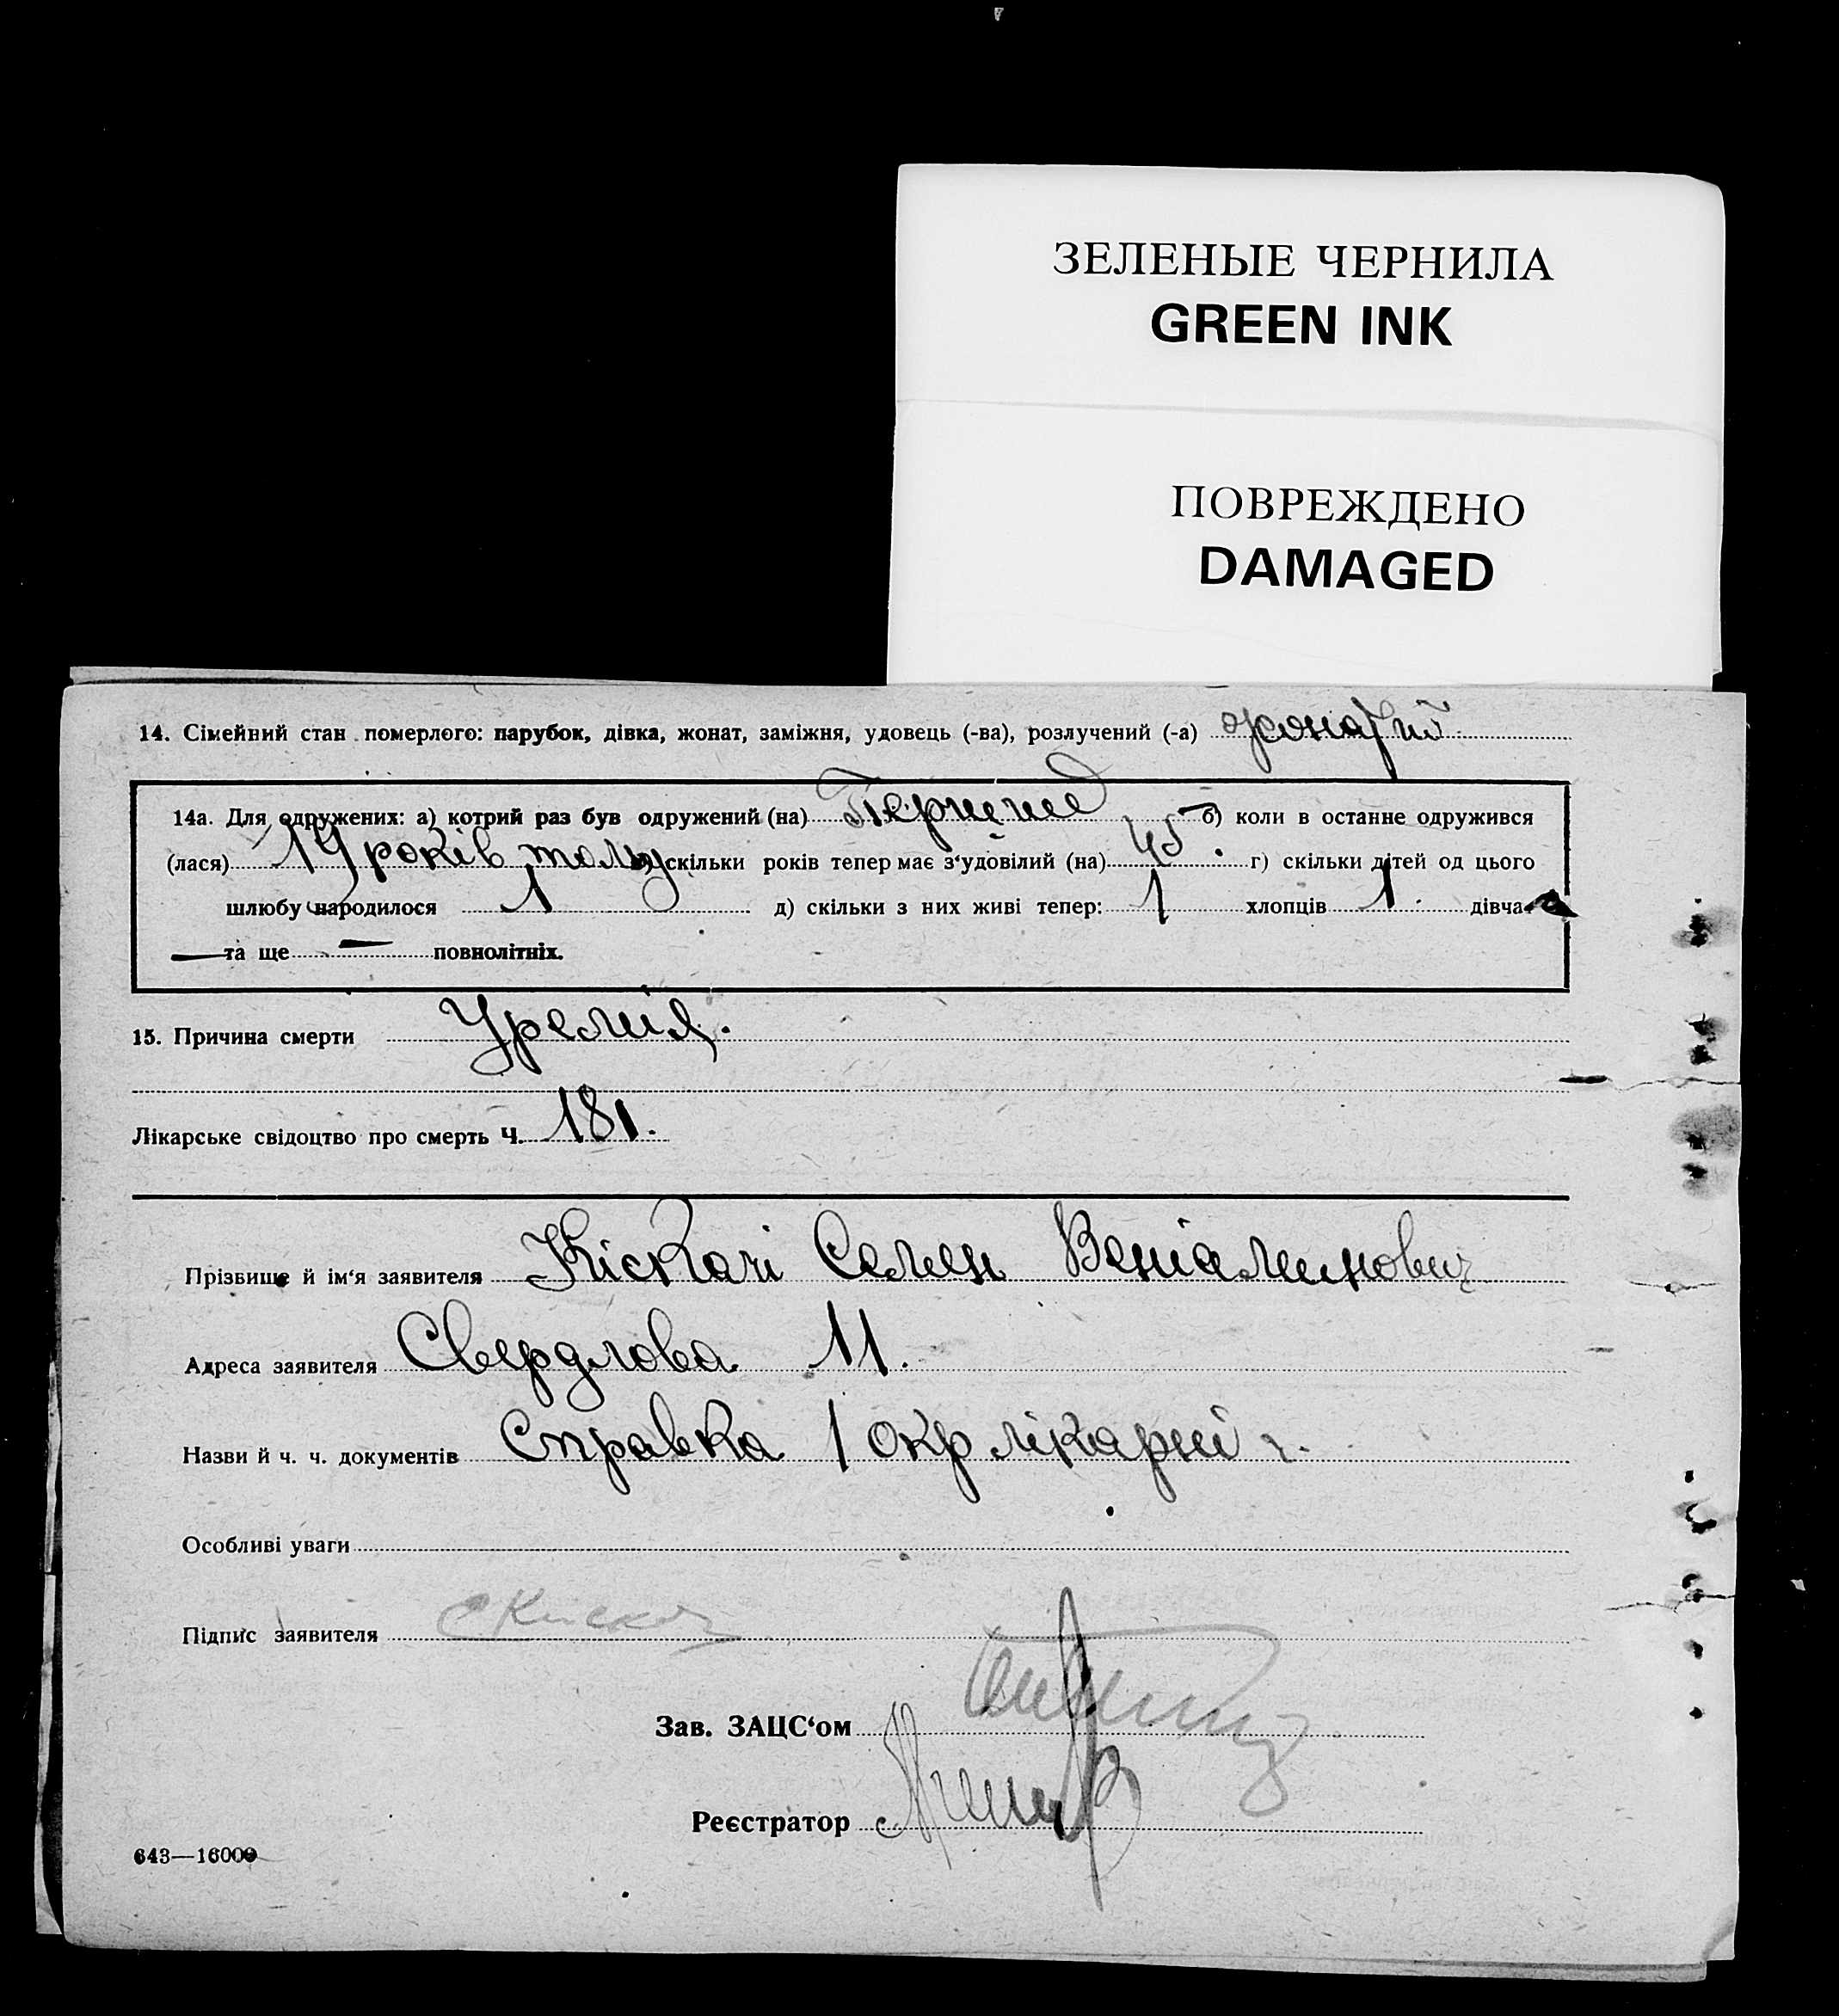 ЗЕЛЕНЫЕ ЧЕРНИЛА
GREEN INK
ПОВРЕЖДЕНО
DAMAGED
14. Сімейний стан померлого: парубок, дівка, жонат, заміжня, удовець (-ва), розлучений (-а) жонатий
14а. Для одружених: а) котрий раз був одружений (на) б) коли в останне одружився
(лася) 19 років тому скільки років тепер має з'удовілий (на) 45. г) скільки дітей од цього
шлюбу народилося 1 д) скільки з них живі тепер: 1 хлопців 1. дівча-
та ще — повнолітніх.
15. Причина смерти Уремія.
Лікарське свідоцтво про смерть Ч. 181.
Прізвище й ім'я заявителя Кіскачі Семен Веніаминович
Адреса заявителя Свердлова 11.
Назви й ч. ч. документів Справка 1 окр лікарні
Особливі уваги
Підпис заявителя
Зав. ЗАЦС'ом
Реєстратор
643—16000